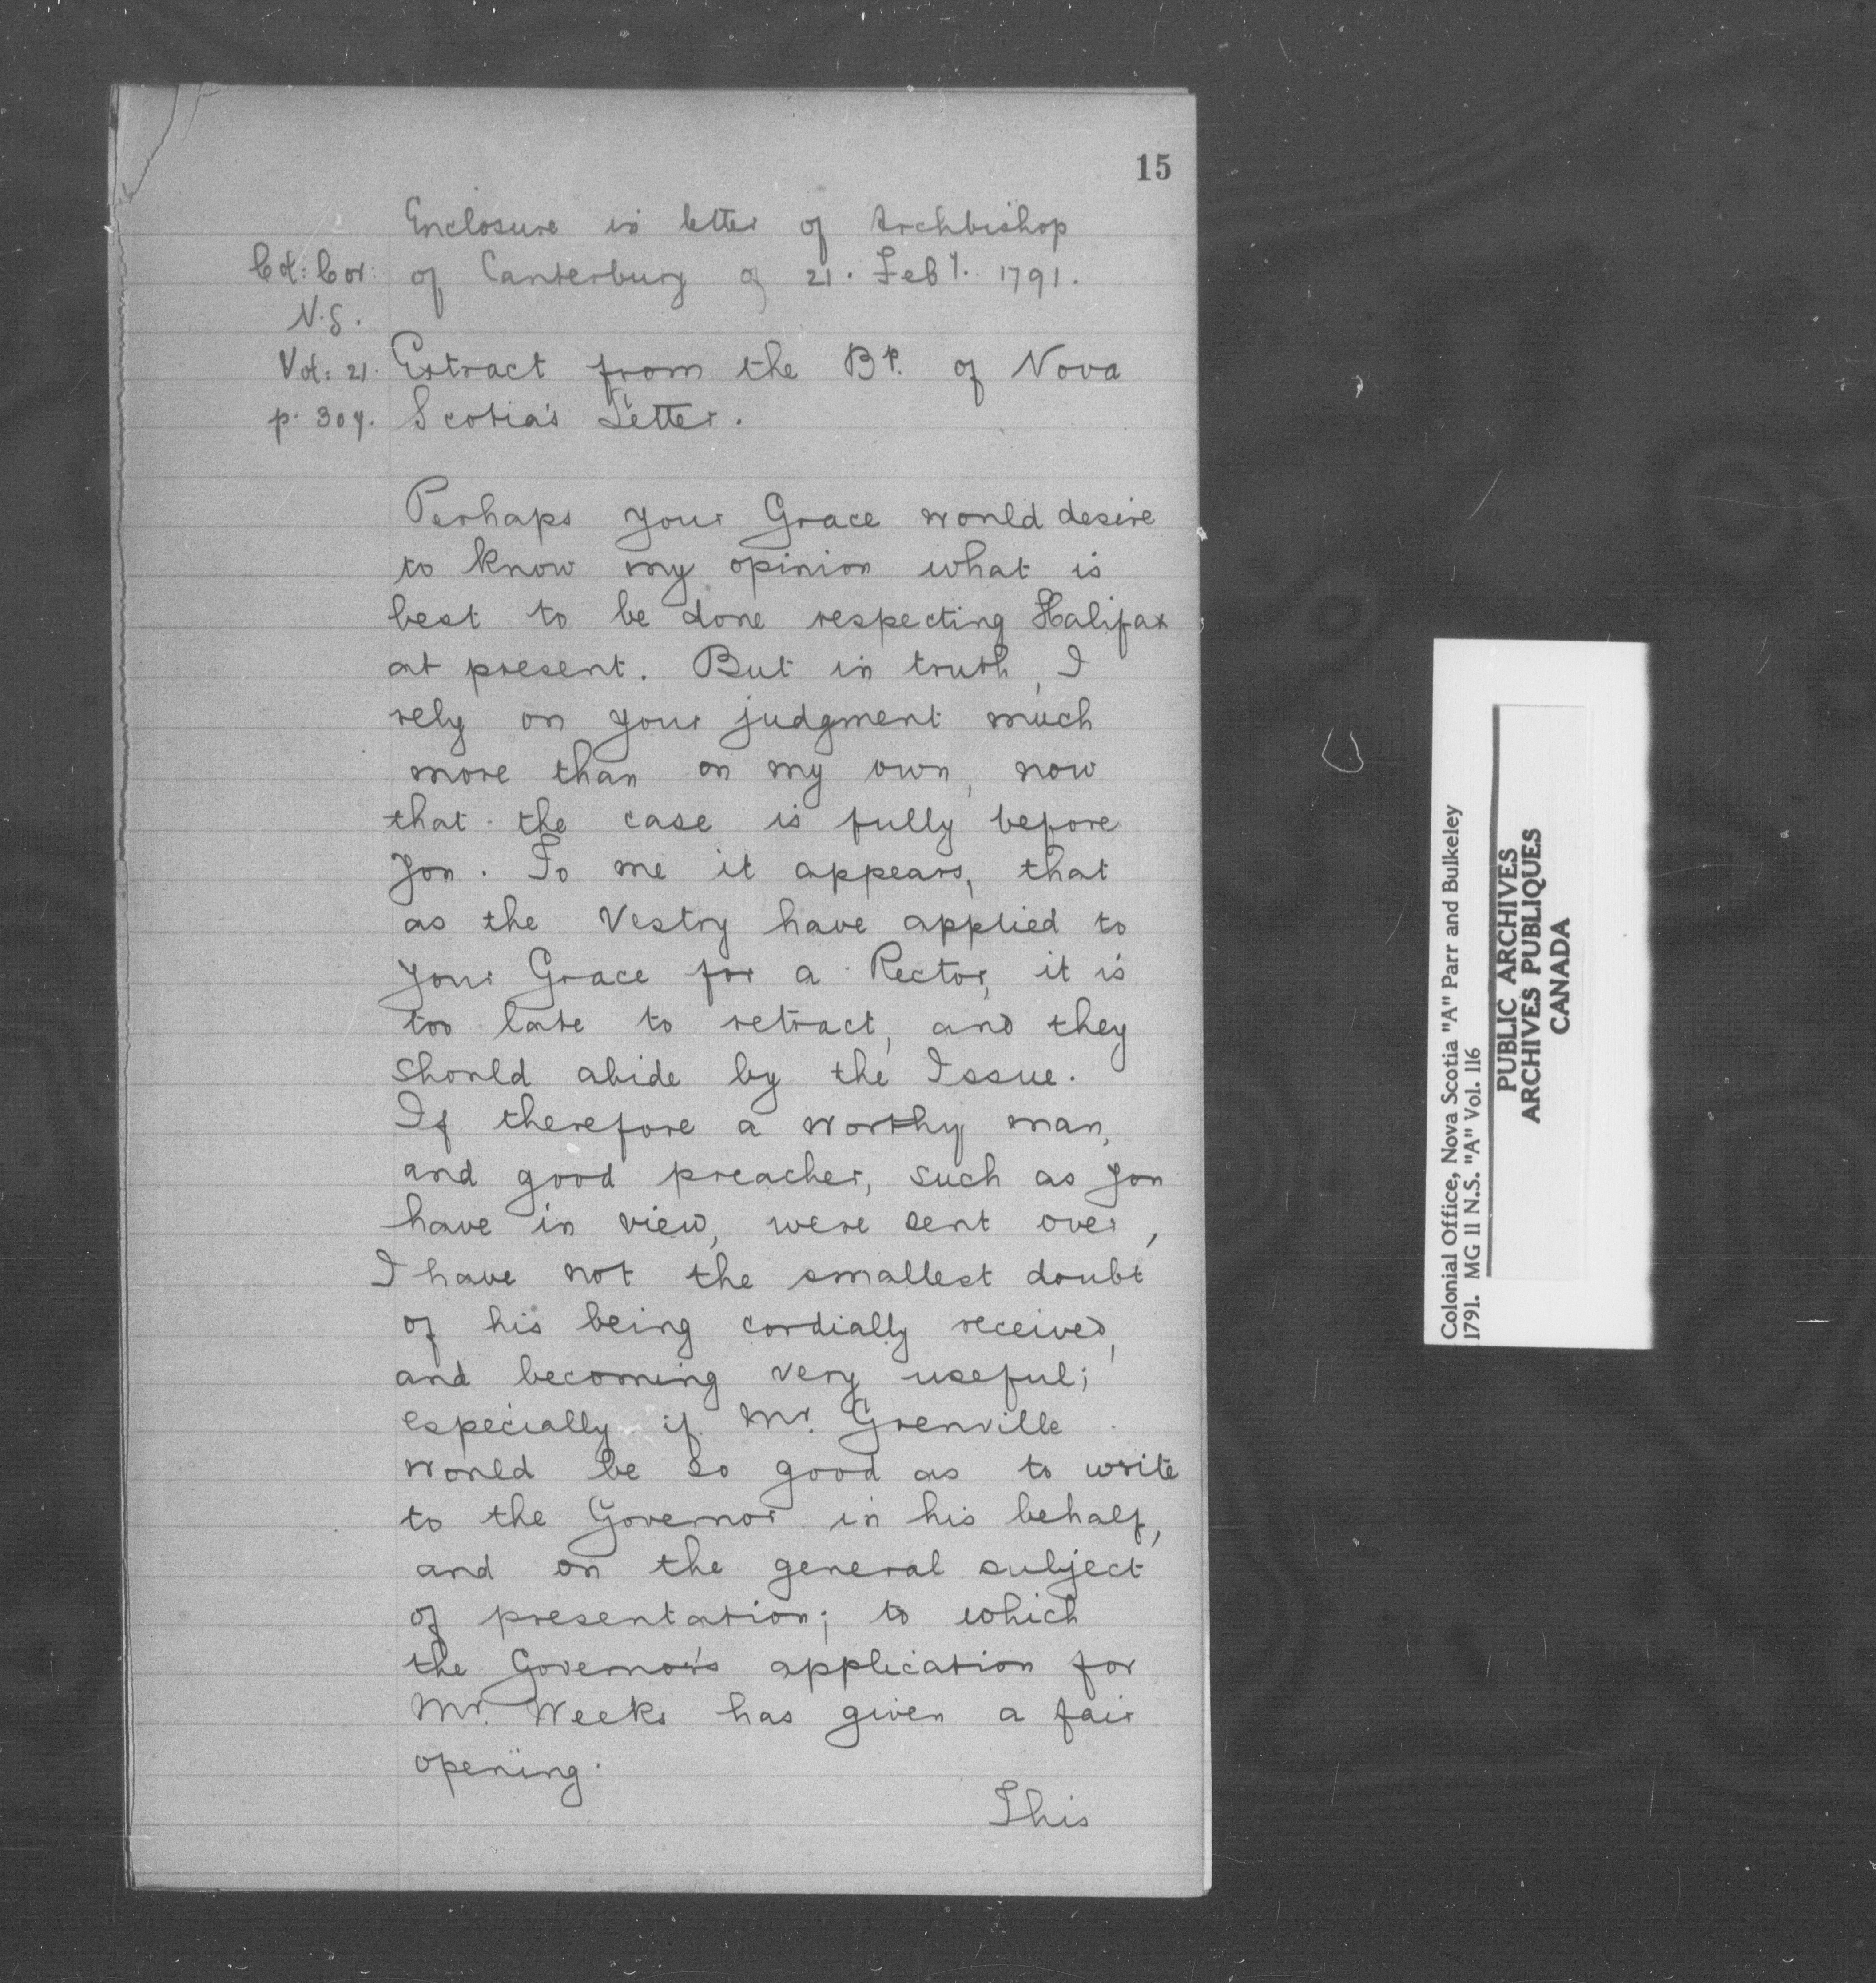 15
Enclosure in letter of Archbishop
of Canterbury of 21. Feby. 1791.
Col: Cor:
N.S.
Vol: 21.
p. 307.
Extract from the Bp. of Nova
Scotia's Letter.
Perhaps your Grace would desire
to know my opinion what is
best to be done respecting Halifax
at present. But in truth, I
rely on your judgment much
more than on my own, now
that the case is fully before
you. To me it appears, that
as the Vestry have applied to
your Grace for a Rector, it is
too late to retract, and they
should abide by the Issue.
If therefore a worthy man,
and good preacher, such as you
have in view, were sent over,
I have not the smallest doubt
of his being cordially received,
and becoming very useful;
especially if Mr. Grenville
would be so good as to write
to the Governor in his behalf,
and on the general subject
of presentation; to which
the Governor's application for
Mr. Weeks has given a fair
opening.
This
Colonial Office, Nova Scotia "A" Parr and Bulkeley
1791. MG 11 N.S. "A" Vol. 116
PUBLIC ARCHIVES
ARCHIVES PUBLIQUES
CANADA